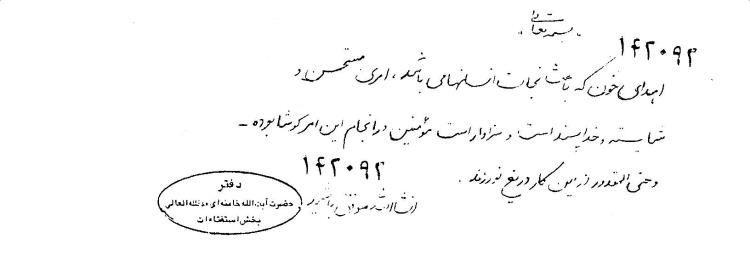 بسمه تعالی
۱۴۲۰۹۲
اهدای خون که باعث نجات انسانها می باشد، امری مستحسن و
شایسته و خدا پسند است و سزاوار است مؤمنین در انجام این امر کوشا بوده -
و حتی المقدور از این کار دریغ نورزند.
۱۴۲۰۹۲
انشاالله موفق باشید
دفتر
حضرت آیت الله خامنه ای مدظله العالی
بخش استفتاءات